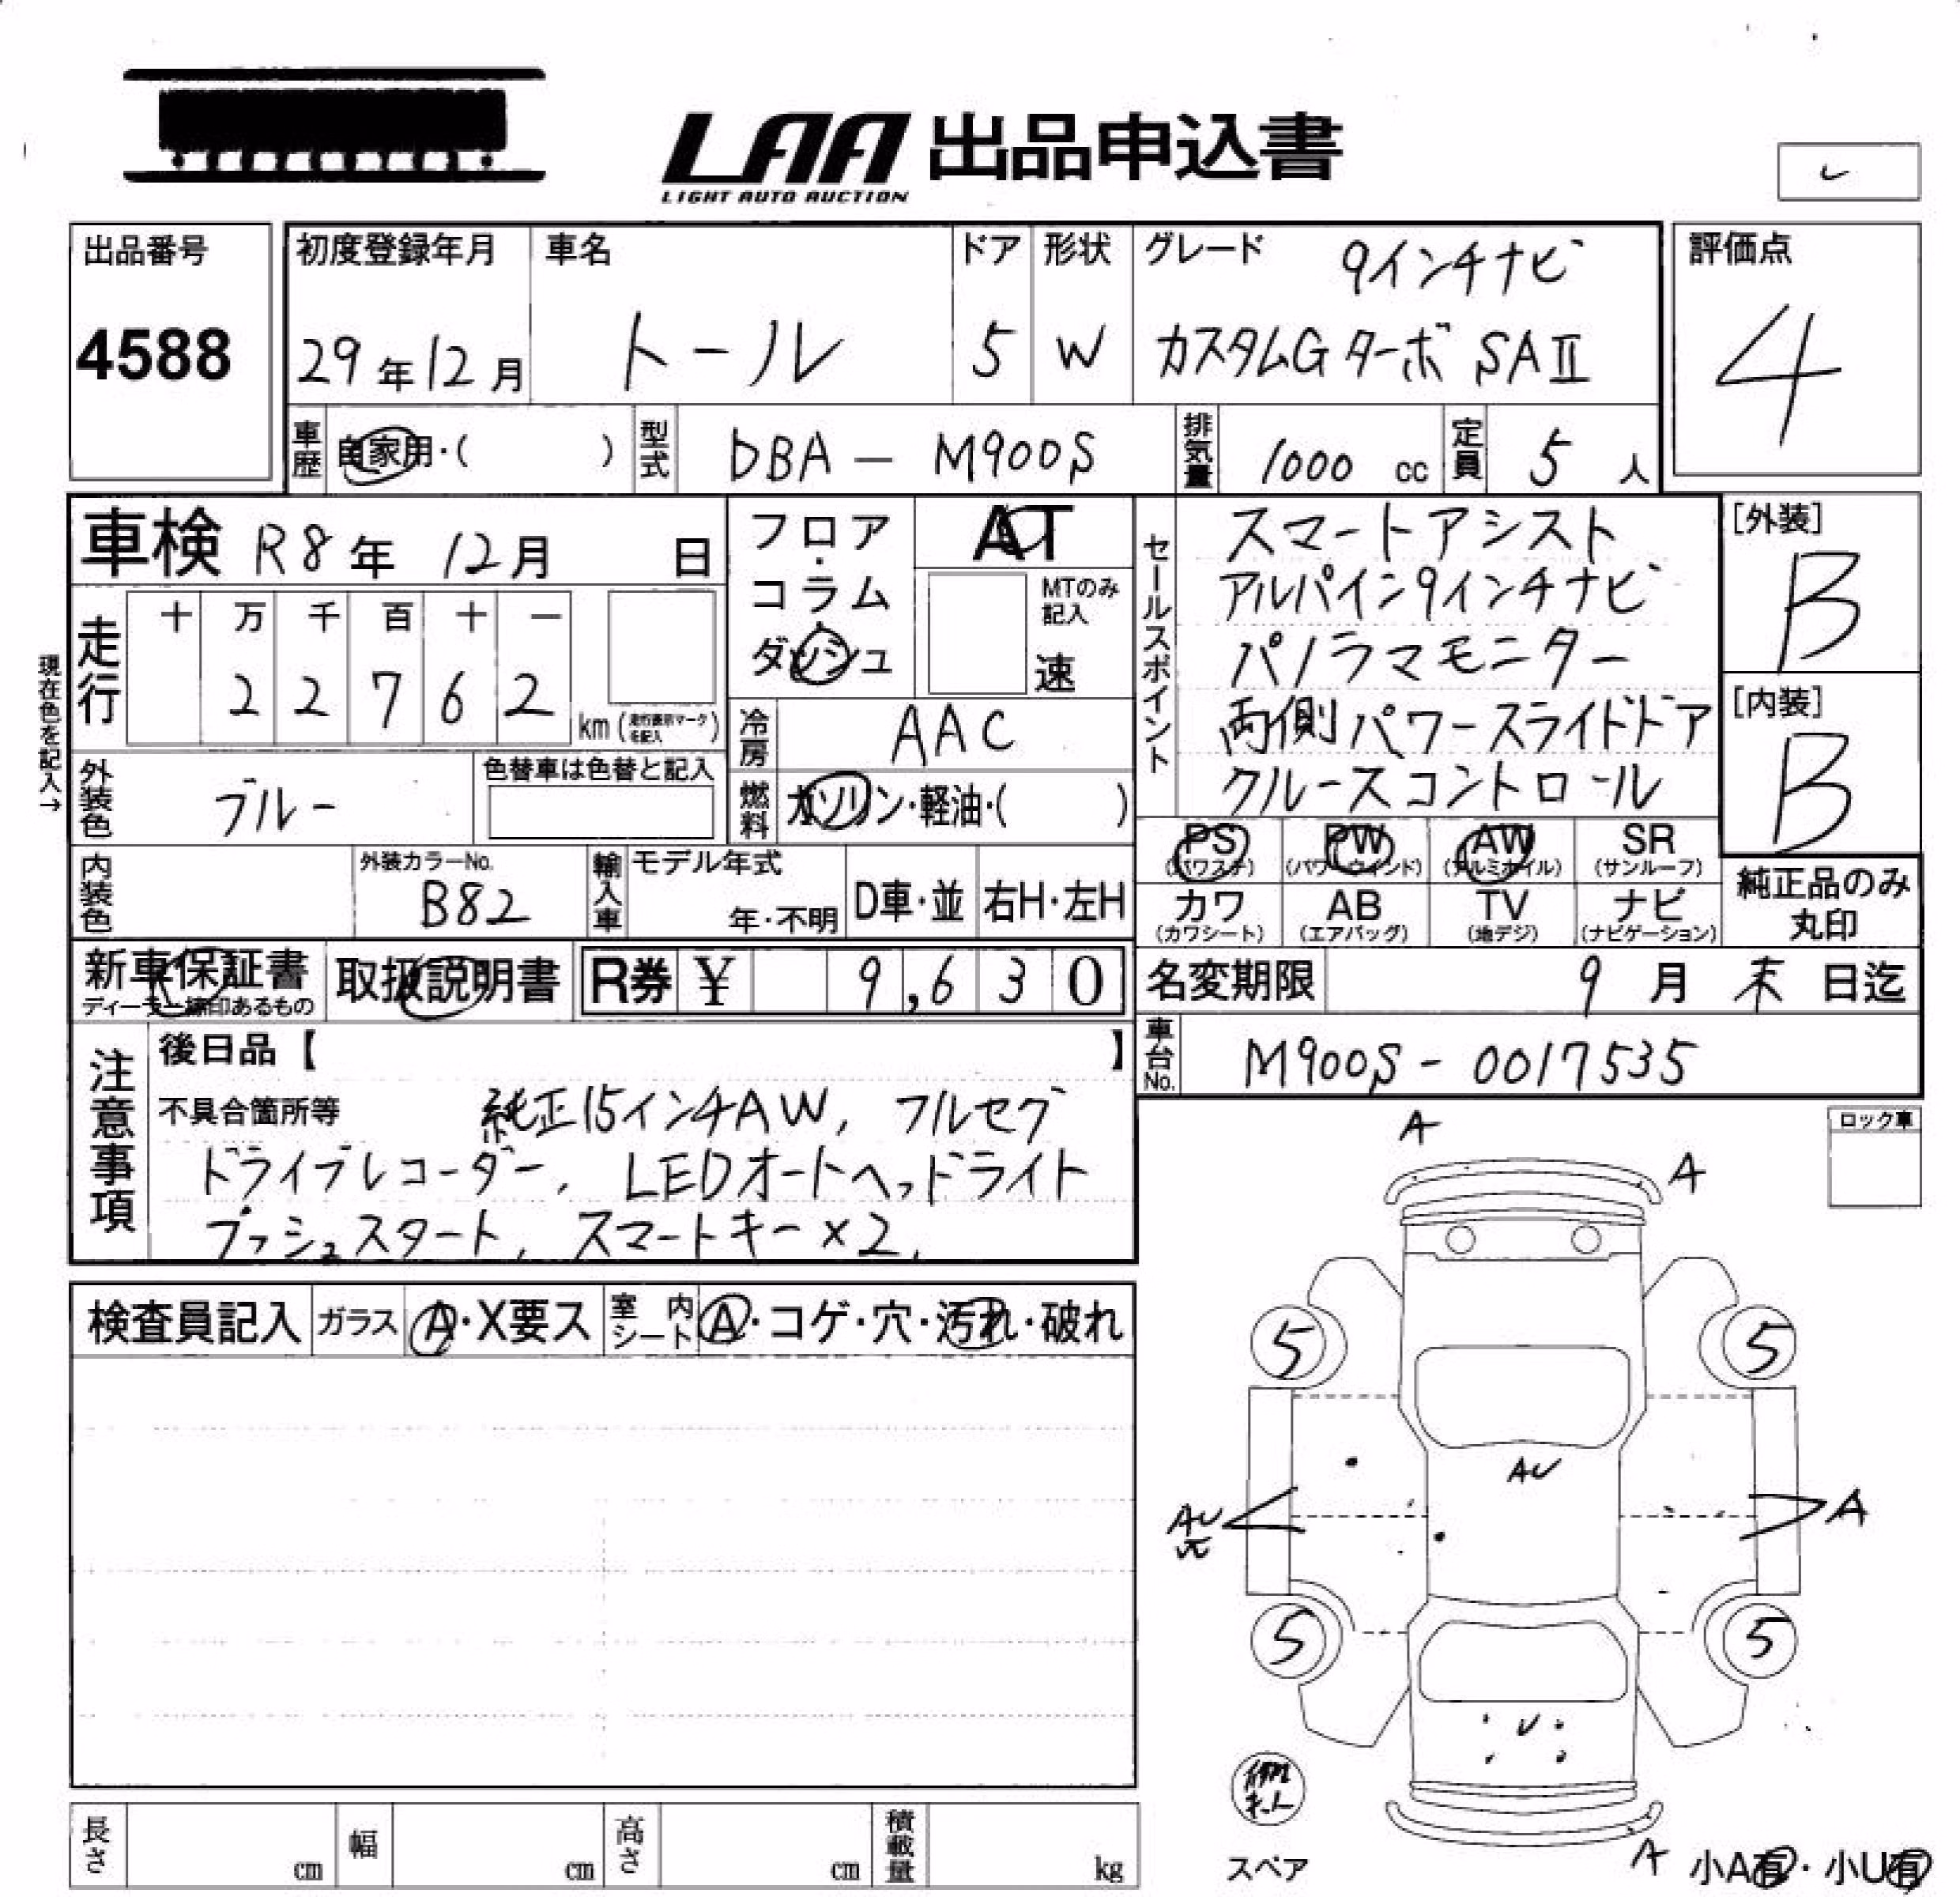 LAA 出品申込書
LIGHT AUTO AUCTION
出品番号
4588
初度登録年月
29年12月
車名
トール
ドア
5
形状
W
グレード
9インチナビ
カスタムG ターボ SAⅡ
評価点
4
車歴
自家用・( )
型式
DBA - M900S
排気量
1000 cc
定員
5 人
車検 R8年 12月 日
走行
十 万 千 百 十 一
2 2 7 6 2
km (走行表示マークを記入)
現在色を記入→
フロア・コラム・ダッシュ
AT
MTのみ記入
速
冷房
AAC
燃料
ガソリン・軽油・( )
外装色
ブルー
色替車は色替と記入
内装色
外装カラーNo.
B82
輸入車
モデル年式
年・不明
D車・並
右H・左H
セールスポイント
スマートアシスト
アルパイン9インチナビ
パノラマモニター
両側パワースライドドア
クルースコントロール
[外装]
B
[内装]
B
PS
(パワステ)
PW
(パワーウインド)
AW
(アルミホイル)
SR
(サンルーフ)
カワ
(カワシート)
AB
(エアバッグ)
TV
(地デジ)
ナビ
(ナビゲーション)
純正品のみ
丸印
新車保証書
取扱説明書
R券 ¥ 9,630
名変期限
9月 末 日迄
車台No.
M900S - 0017535
注意事項
後日品【 】
不具合箇所等 純正15インチAW, フルセグ
ドライブレコーダー, LEDオートヘッドライト
プッシュスタート, スマートキー×2,
検査員記入
ガラス
A・X要ス
室内シート
A・コゲ・穴・汚れ・破れ
ロック車
A
A
5
5
AU
AU
A
5
5
U
スペア
A
小A有・小U有
長さ cm
幅 cm
高さ cm
積載量 kg